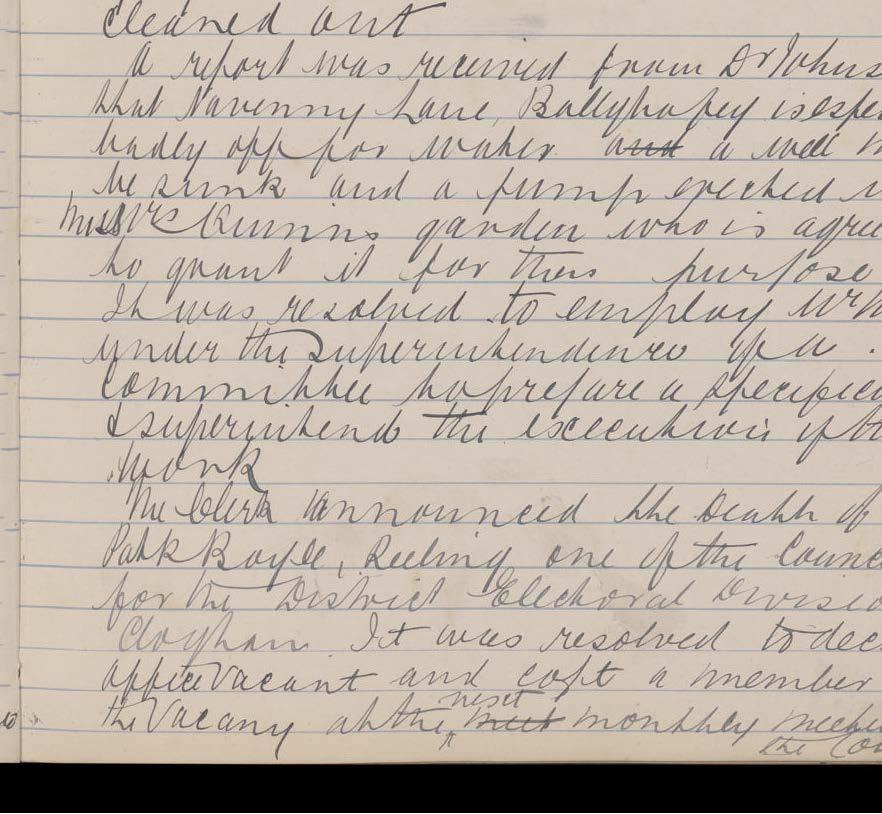 cleaned out
A report was received from Dr Johns
that Navenny Lane, Ballybofey is espe
badly off for water and a well m
be sunk and a pump erected
Miss Mrs garden who is agree
to grant it for this purpose
It was resolved to employ Mr
under the Superintendence of a
Committee to prepare a specific
& superintend the execution of
work
The Clerk announced the Death of
Patk Boyle, one of the Counc
for the District Electoral Divisio
Cloghan It was resolved to dec
office Vacant and copt a member
the Vacany at the next meet monthly meetin
the Cou